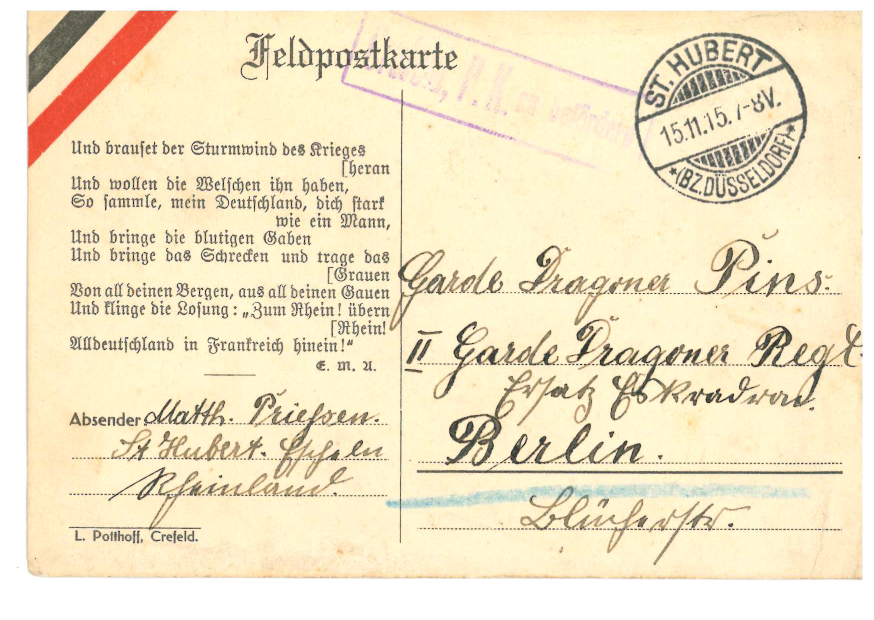 Feldpostkarte
P. K. zu befördern
ST. HUBERT
15.11.15. 7-8V.
*(BZ.DÜSSELDORF)*
Und brauset der Sturmwind des Krieges
[heran
Und wollen die Welschen ihn haben,
So sammle, mein Deutschland, dich stark
wie ein Mann,
Und bringe die blutigen Gaben
Und bringe das Schrecken und trage das
[Grauen
Von all deinen Bergen, aus all deinen Gauen
Und klinge die Losung: „Zum Rhein! übern
[Rhein!
Alldeutschland in Frankreich hinein!"
E. M. A.
Absender Matth. Prießen.
St Hubert. Escheln
Rheinland.
L. Potthoff, Crefeld.
Garde Dragoner Pins.
II Garde Dragoner Regt.
Ersatz Eskradron.
Berlin.
Blücherstr.